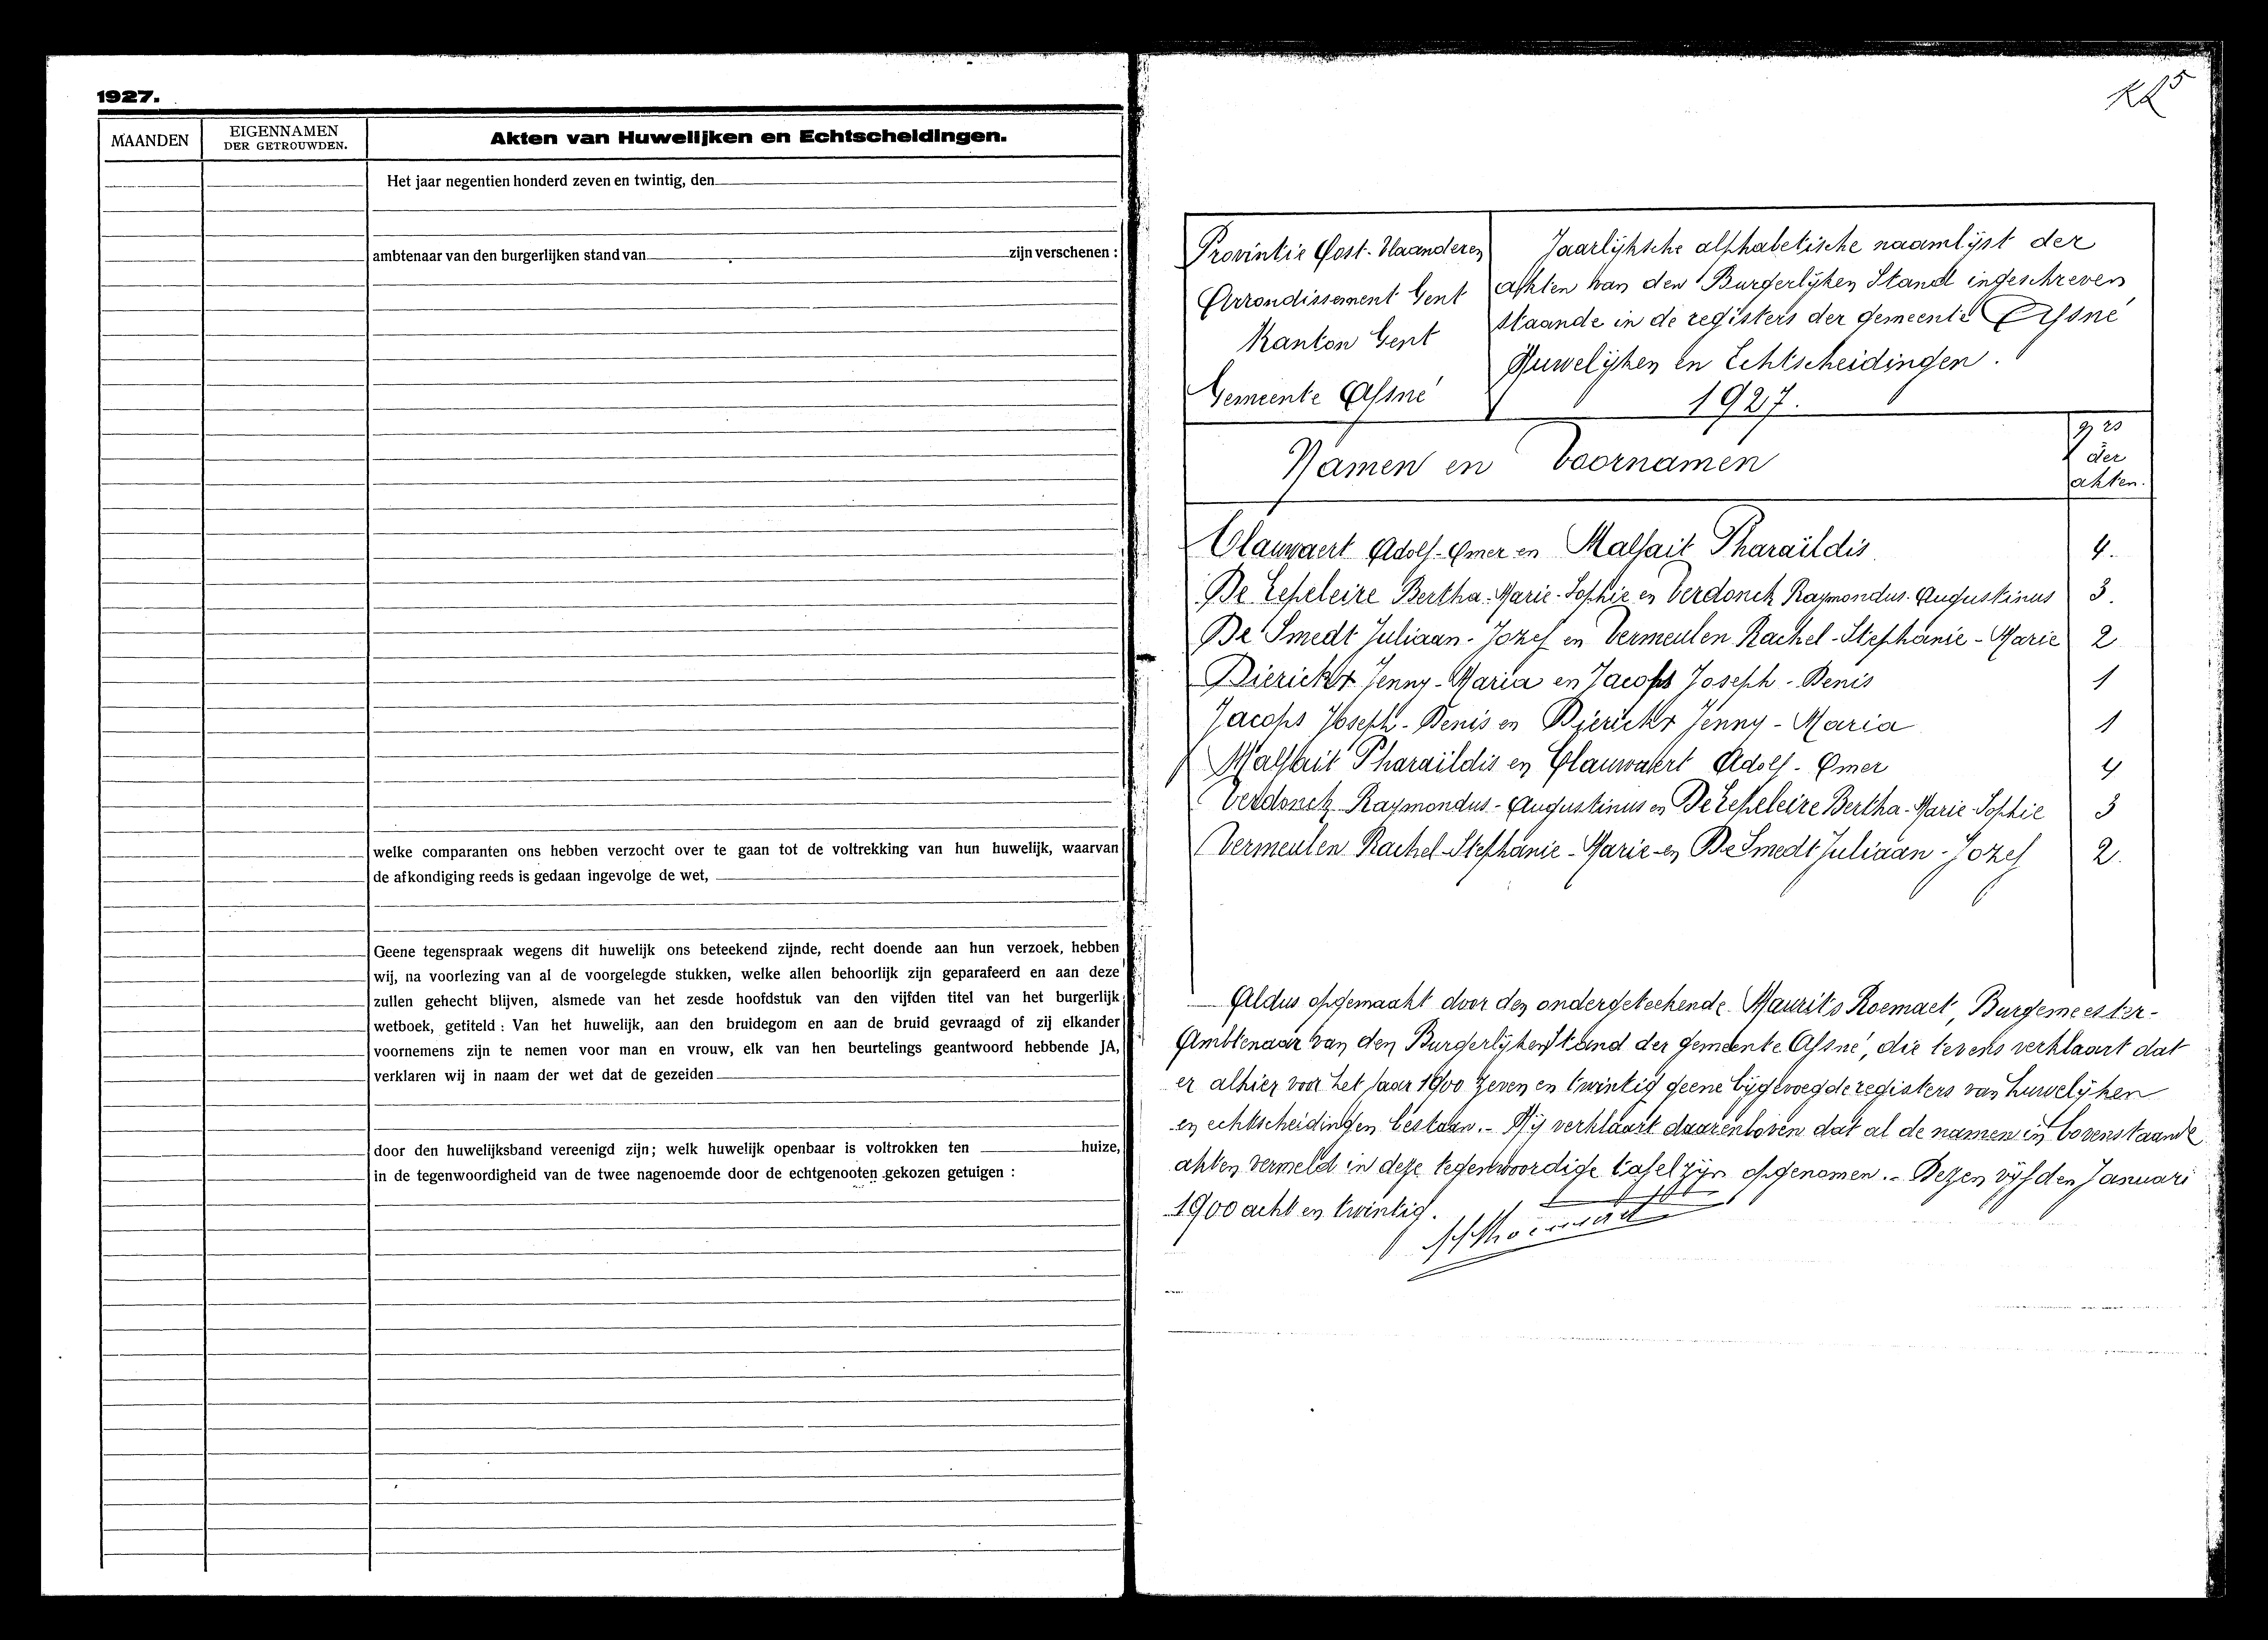 1927.
MAANDEN
EIGENNAMEN
DER GETROUWDEN.
Akten van Huwelijken en Echtscheidingen.
Het jaar negentien honderd zeven en twintig, den
ambtenaar van den burgerlijken stand van zijn verschenen :
welke comparanten ons hebben verzocht over te gaan tot de voltrekking van hun huwelijk, waarvan
de afkondiging reeds is gedaan ingevolge de wet,
Geene tegenspraak wegens dit huwelijk ons beteekend zijnde, recht doende aan hun verzoek, hebben
wij, na voorlezing van al de voorgelegde stukken, welke allen behoorlijk zijn geparafeerd en aan deze
zullen gehecht blijven, alsmede van het zesde hoofdstuk van den vijfden titel van het burgerlijk
wetboek, getiteld : Van het huwelijk, aan den bruidegom en aan de bruid gevraagd of zij elkander
voornemens zijn te nemen voor man en vrouw, elk van hen beurtelings geantwoord hebbende JA,
verklaren wij in naam der wet dat de gezeiden
door den huwelijksband vereenigd zijn; welk huwelijk openbaar is voltrokken ten huize,
in de tegenwoordigheid van de twee nagenoemde door de echtgenooten gekozen getuigen :
Provintie Oost-Vlaanderen
Arrondissement Gent
Kanton Gent
Gemeente Afsné
Jaarlijksche alphabetische naamlijst der
akten van den Burgerlijken Stand ingeschreven
staande in de registers der gemeente Afsné
Huwelijken en Echtscheidingen.
1927.
Namen en Voornamen
Nrs
der
akten.
Clauwaert Adolf-Omer en Malfait Pharaïldis 4.
De Lepeleire Bertha-Marie-Sophie en Verdonck Raymondus-Augustinus 3.
De Smedt Juliaan-Jozef en Vermeulen Rachel-Stephanie-Marie 2
Dierickx Jenny-Maria en Jacops Joseph-Denis 1
Jacops Joseph-Denis en Dierickx Jenny-Maria 1
Malfait Pharaïldis en Clauwaert Adolf-Omer 4
Verdonck Raymondus-Augustinus en De Lepeleire Bertha-Marie-Sophie 3
Vermeulen Rachel-Stephanie-Marie en De Smedt Juliaan-Jozef 2.
Aldus opgemaakt door den ondergeteekende Maurits Roemaet, Burgemeester-
Ambtenaar van den Burgerlijken Stand der gemeente Afsné, die tevens verklaart dat
er alhier voor het jaar 1900 zeven en twintig geene bijgevoegde registers van huwelijken
en echtscheidingen bestaan.- Hij verklaart daarenboven dat al de namen in bovenstaande
akten vermeld in deze tegenwoordige tafel zijn opgenomen.- Dezen vijfden Januari
1900 acht en twintig.